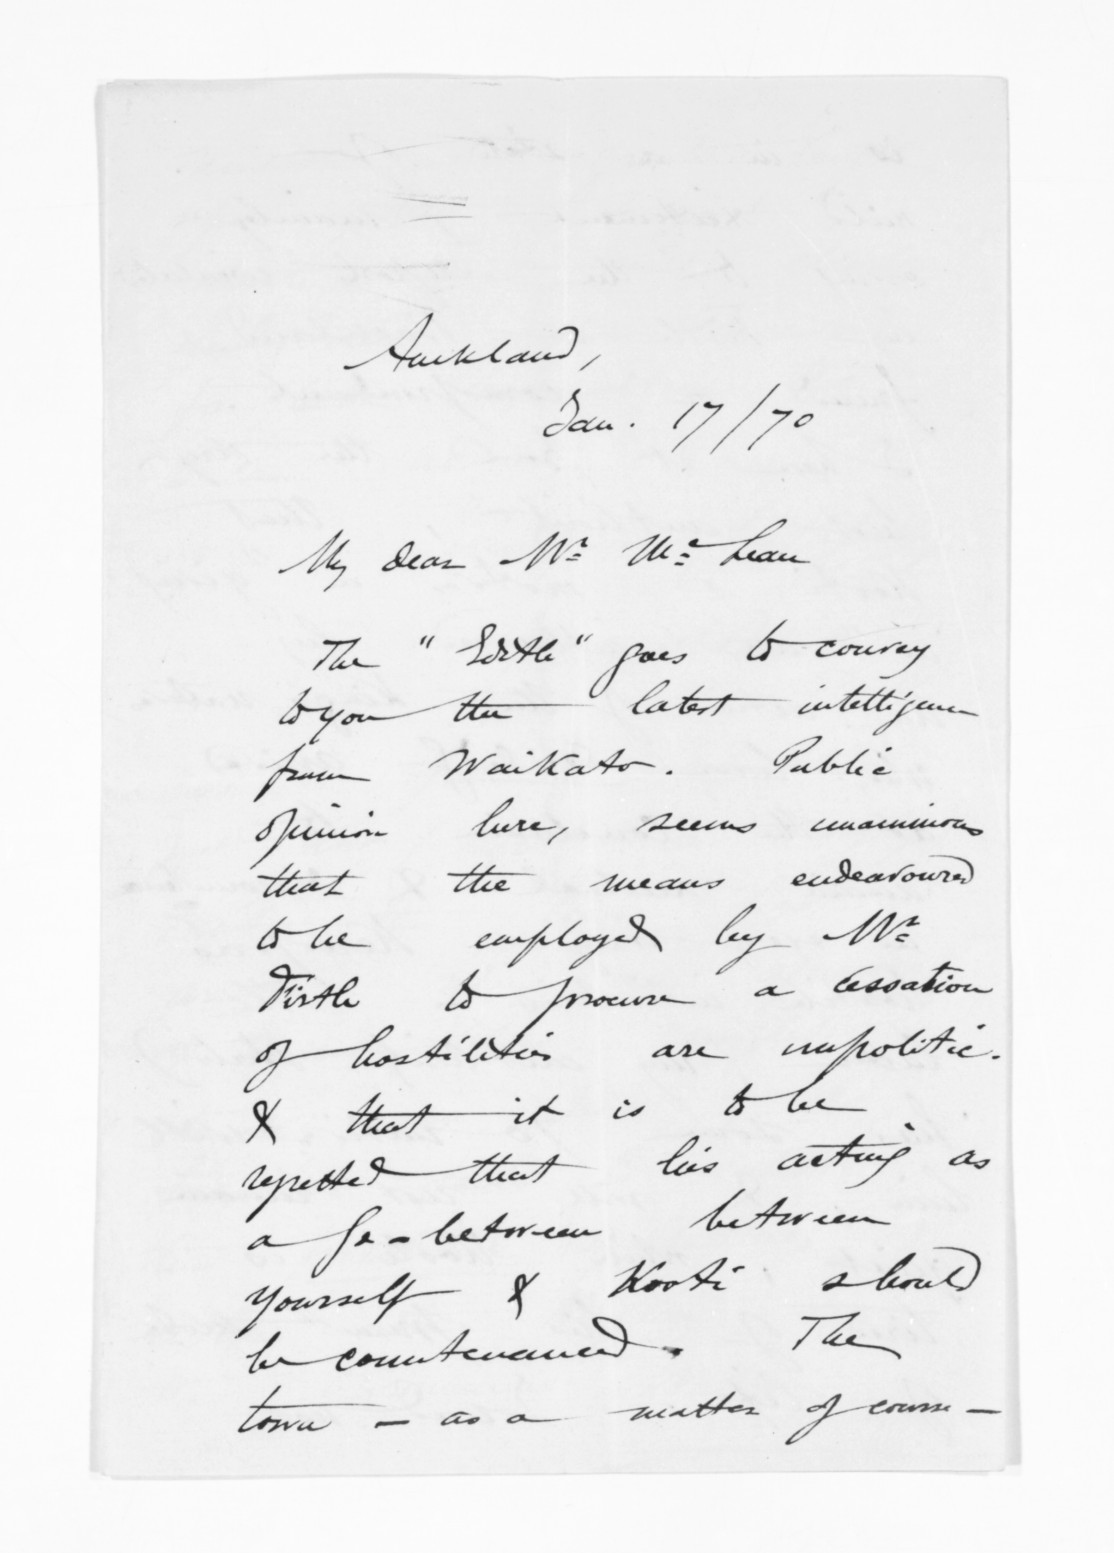 Auckland,
Jan. 17/70
My dear Mr McLean
The "Edith" goes to convey
to you the latest intelligence
from Waikato. Public
opinion here, seems unanimous
that the means endeavoured
to be employed by Mr
Firth to procure a cessation
of hostilities are impolitic.
& that it is to be
regretted that his acting as
a go-between between
yourself & Kooti should
be countenanced. The
town – as a matter of course –